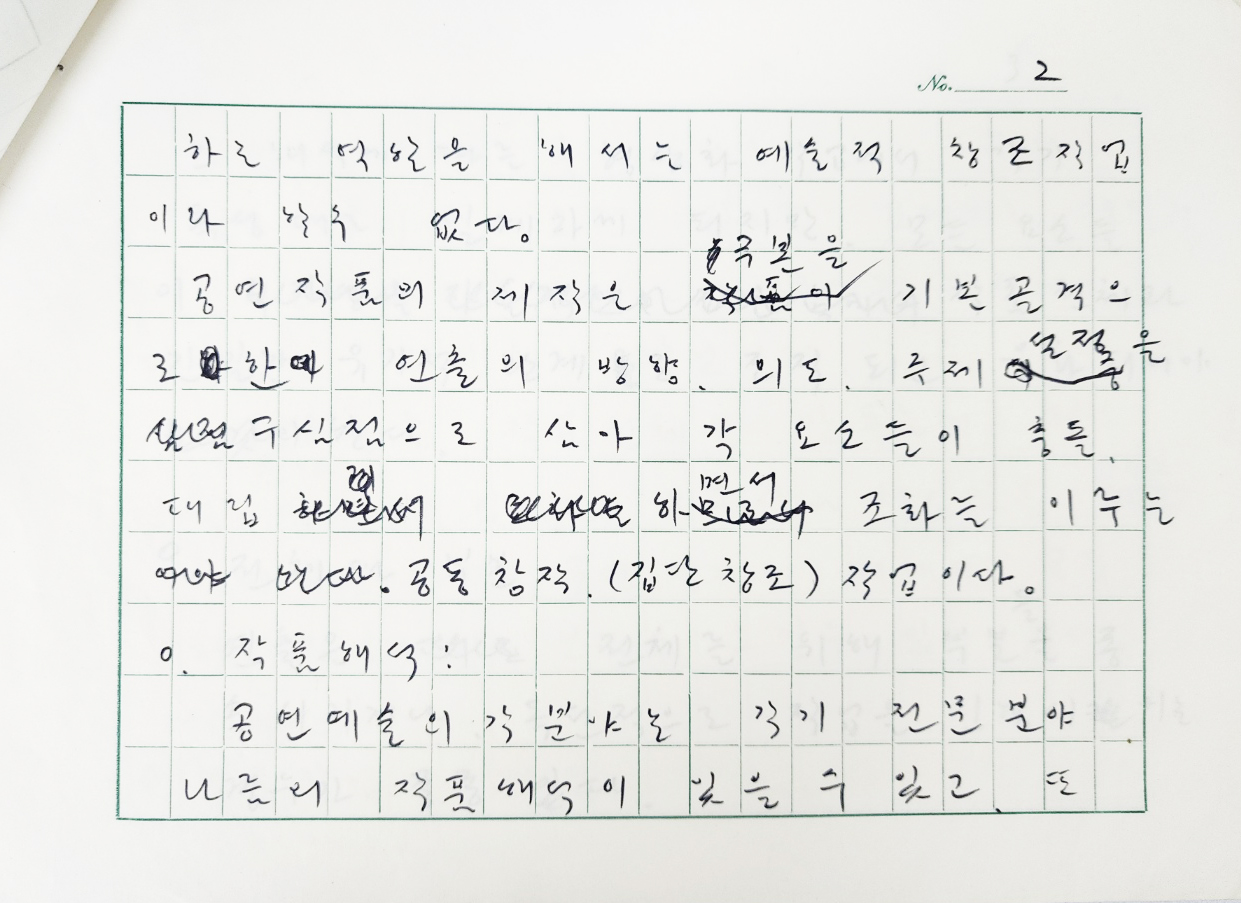 No. 2
하는 역할을 해서는 예술적 창조작업
이라 할 수 없다.
극본을
공연작품의 제작은 기본골격으
로 한 연출의 방향. 의도. 주제
설정을
구심점으로 삼아 각 요소들이 충돌.
면서
대립 하 조화를 이루는
공동창작.(집단창조) 작업이다.
o. 작품해석:
공연예술의 각 분야는 각기 전문분야
나름의 작품해석이 있을 수 있고. 또